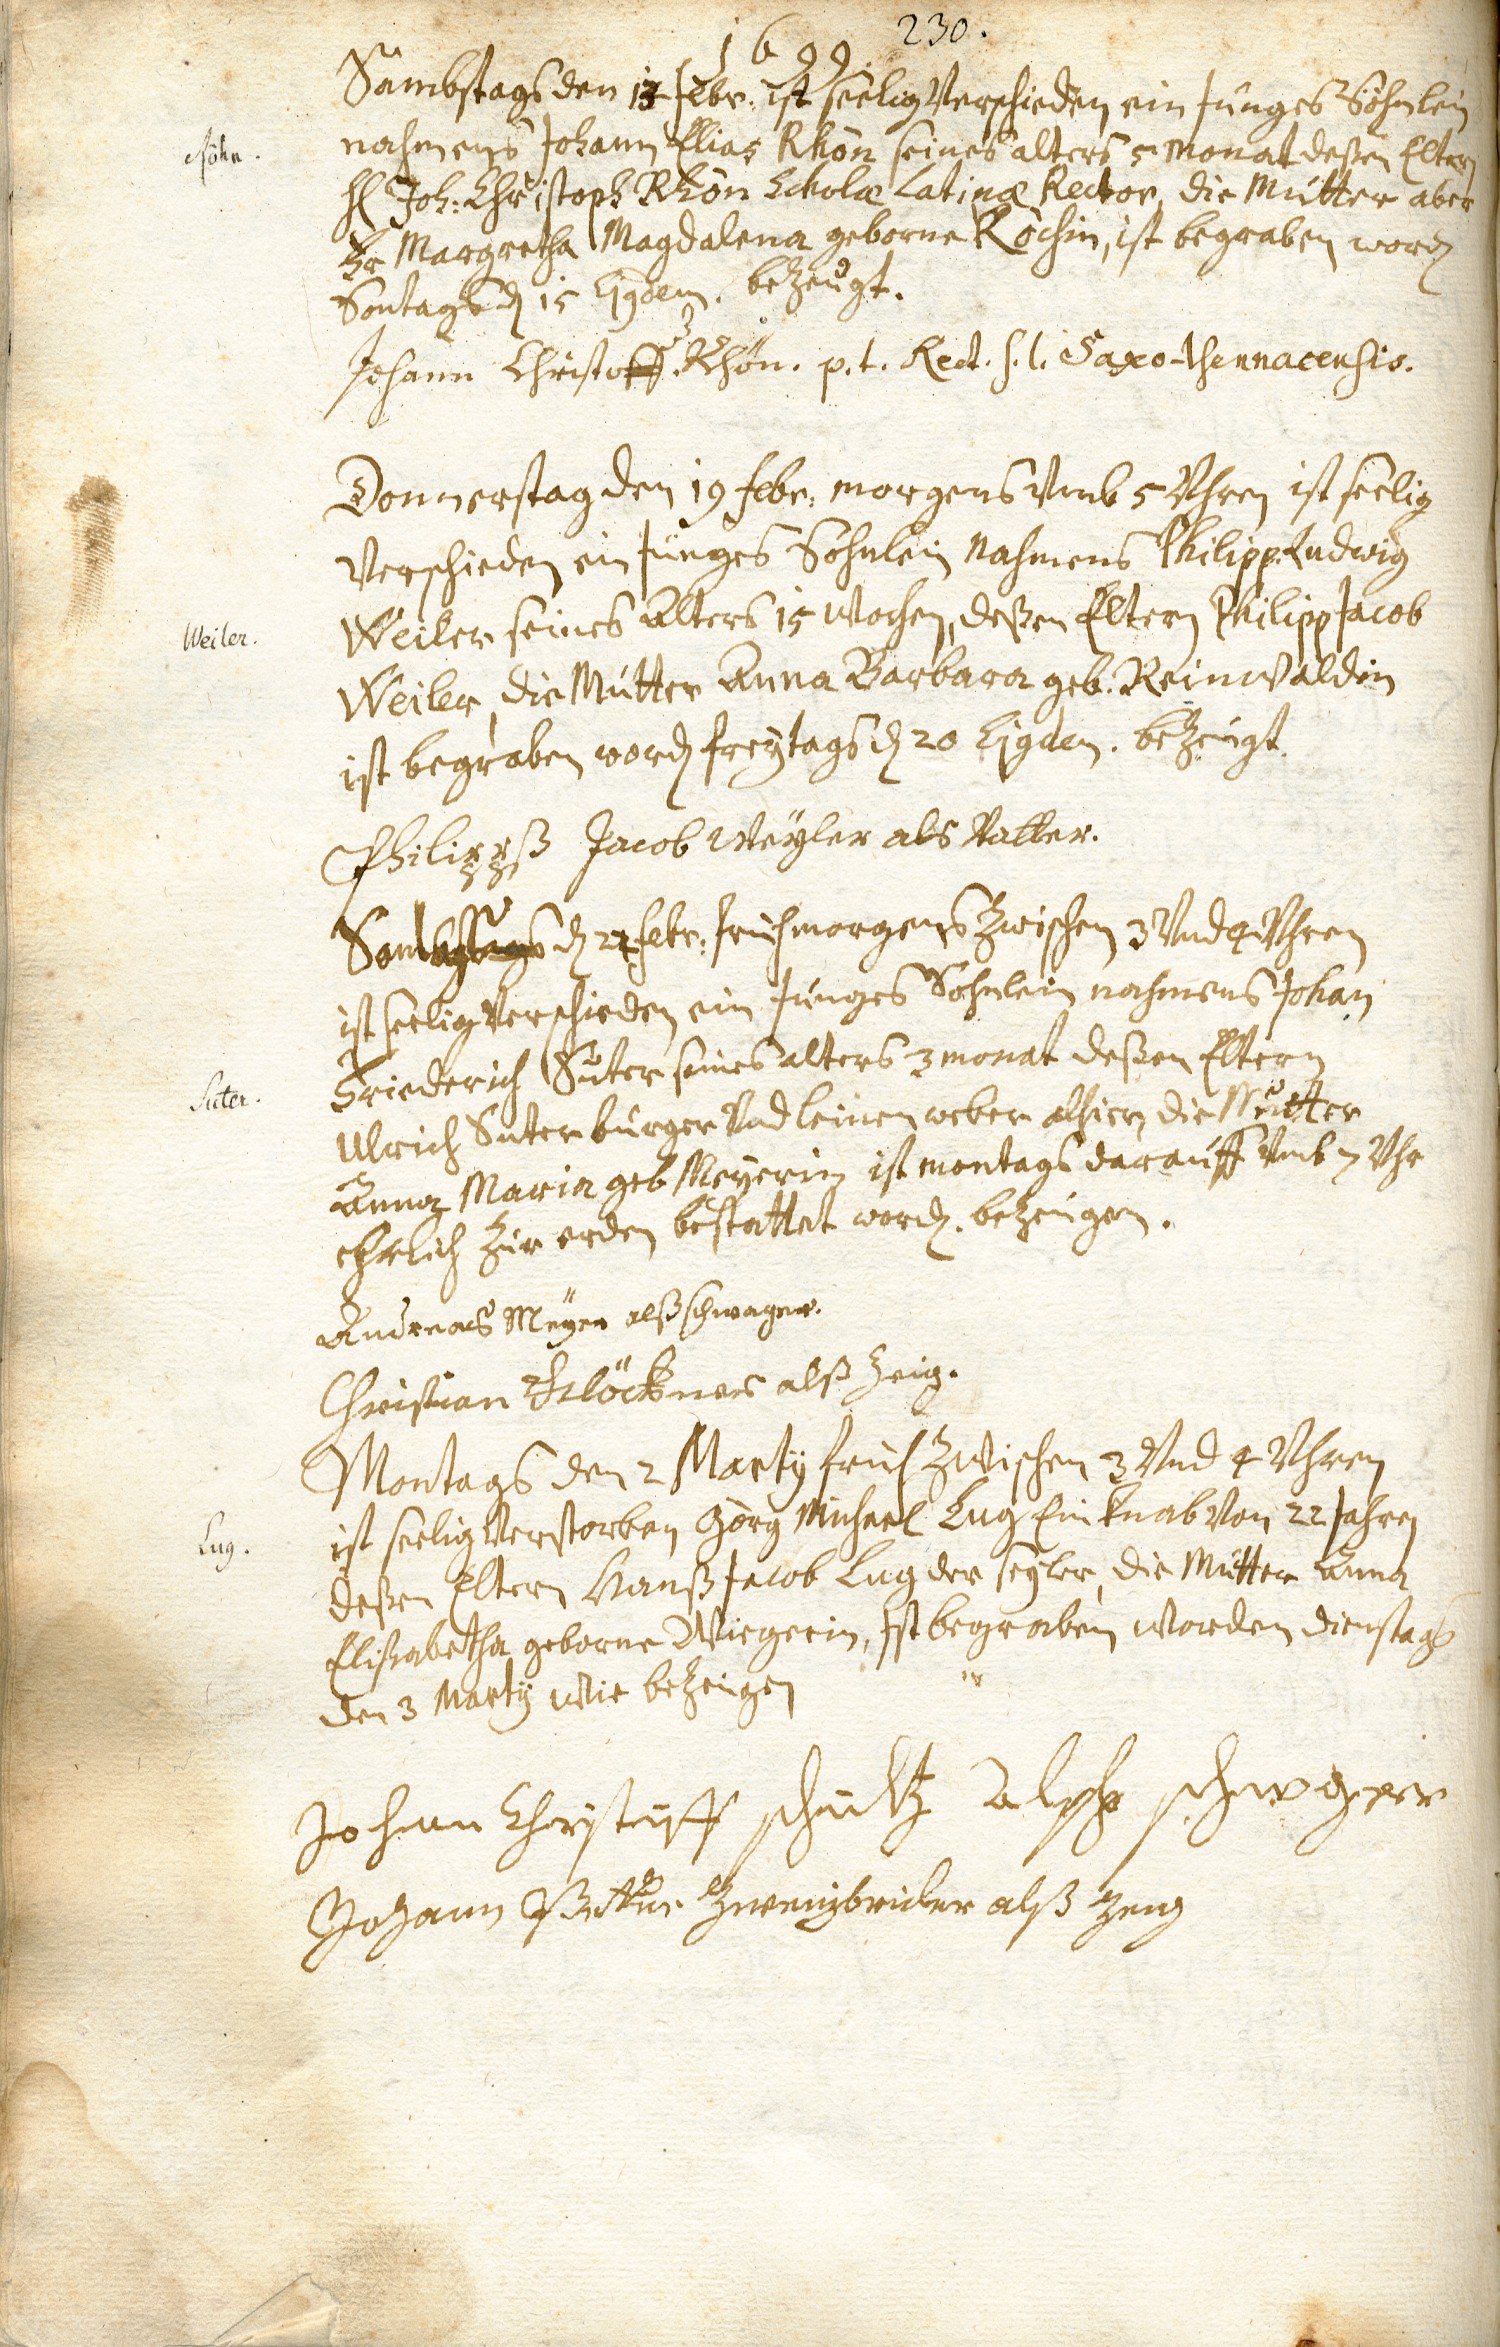 230.
1699.
Sambstags den 14 febr. ist seelig Verschieden ein Junges Söhnlein
Röhn.
nahmens Johann Elias Rhön seines alters 5 Monat deßen Eltern
H Joh: Christoph Rhön Scholæ Latinæ Rector, die Mutter aber
Fr Margretha Magdalena geborne Köchin, ist begraben word
Sontags d 15 Ejgdem. bezeugt.
Johann Christoff Rhön. p. t. Rect. s. l. Saxo-
Donnerstag den 19 febr: morgens Vmb 5 Vhren ist seelig
Verschieden ein Junges Söhnlein Nahmens Philipp Ludwig
Weiler.
Weiler seines Alters 15 Wochen, deßen Eltern Philipp Jacob
Weiler, die Mutter Anna Barbara geb. Reinwaldin
ist begraben word freytags d 20 Ejgdem. bezeugt
Philippß Jacob Weyler als Vatter.
d 22 febr: fruhmorgens Zwischen 3 Vnd 4 Vhren
ist seelig Verschieden ein Junges Söhnlein nahmens Johan
Suter.
Friederich Suter seines alters 3 monat deßen Eltern
Ulrich Suter burger Vnd leinenweber alhier, die Mutter
Anna Maria geb Meyerin ist montags darauff Vmb 7 Vhr
ehrlich Zur erden bestattet word. bezeugen.
Andreas Meyer alß schwager.
Christian Klöckner alß Zeig.
Montags den 2 Marty fruh Zwischen 3 Vnd 4 Vhren
Lug.
ist seelig Verstorben Görg Michael Lug Ein knab Von 22 Jahren
deßen Eltern Hanß Jacob Lug der seyler, die Mutter Anna
Elisabetha geborne Wiegerin, Ist begraben worden dienstags
den 3 Marty wie bezeigen
Johann Christuff schultz alß schwger
Johann Zweinbricker alß zeig